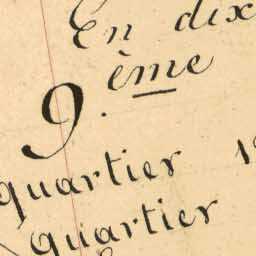 En dix
9.ème
quartier 1
quartier